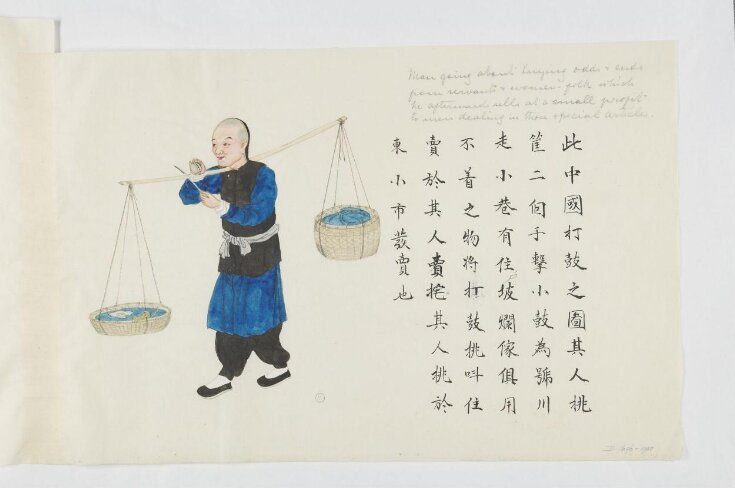 Man going about buying odds & ends
from servants & women-folk which
he afterward sells at a small profit
to men dealing in those special articles.
此中國打鼓之圖其人挑
筐二個手擊小鼓為號川
走小巷有住坡爛傢俱用
不着之物將打鼓挑呌住
賣於其人賣挓其人挑於
東小市發賣也